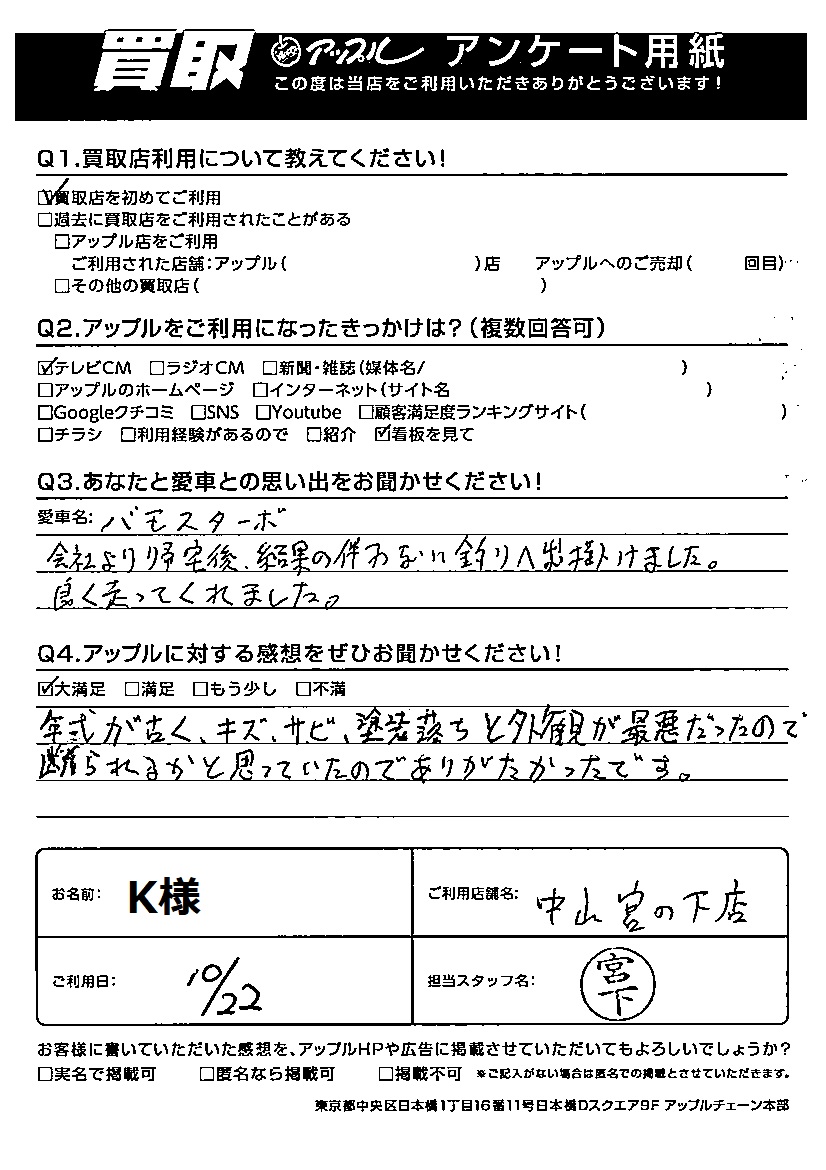 買取 アップル アンケート用紙
この度は当店をご利用いただきありがとうございます!
Q1.買取店利用について教えてください!
☑買取店を初めてご利用
□過去に買取店をご利用されたことがある
□アップル店をご利用
ご利用された店舗:アップル( )店 アップルへのご売却( 回目)
□その他の買取店( )
Q2.アップルをご利用になったきっかけは?(複数回答可)
☑テレビCM □ラジオCM □新聞・雑誌(媒体名/ )
□アップルのホームページ □インターネット(サイト名 )
□Googleクチコミ □SNS □Youtube □顧客満足度ランキングサイト( )
□チラシ □利用経験があるので □紹介 ☑看板を見て
Q3.あなたと愛車との思い出をお聞かせください!
愛車名: バモスターボ
会社より帰宅後、結果の伴わない釣りへ出掛けました。
良く走ってくれました。
Q4.アップルに対する感想をぜひお聞かせください!
☑大満足 □満足 □もう少し □不満
年式が古く、キズ、サビ、塗装落ちと外観が最悪だったので
断られるかと思っていたのでありがたかったです。
お名前: K様 ご利用店舗名: 中山宮の下店
ご利用日: 10/22 担当スタッフ名: 宮下
お客様に書いていただいた感想を、アップルHPや広告に掲載させていただいてもよろしいでしょうか?
□実名で掲載可 □匿名なら掲載可 □掲載不可 ※ご記入がない場合は匿名での掲載とさせていただきます。
東京都中央区日本橋1丁目16番11号日本橋Dスクエア9F アップルチェーン本部